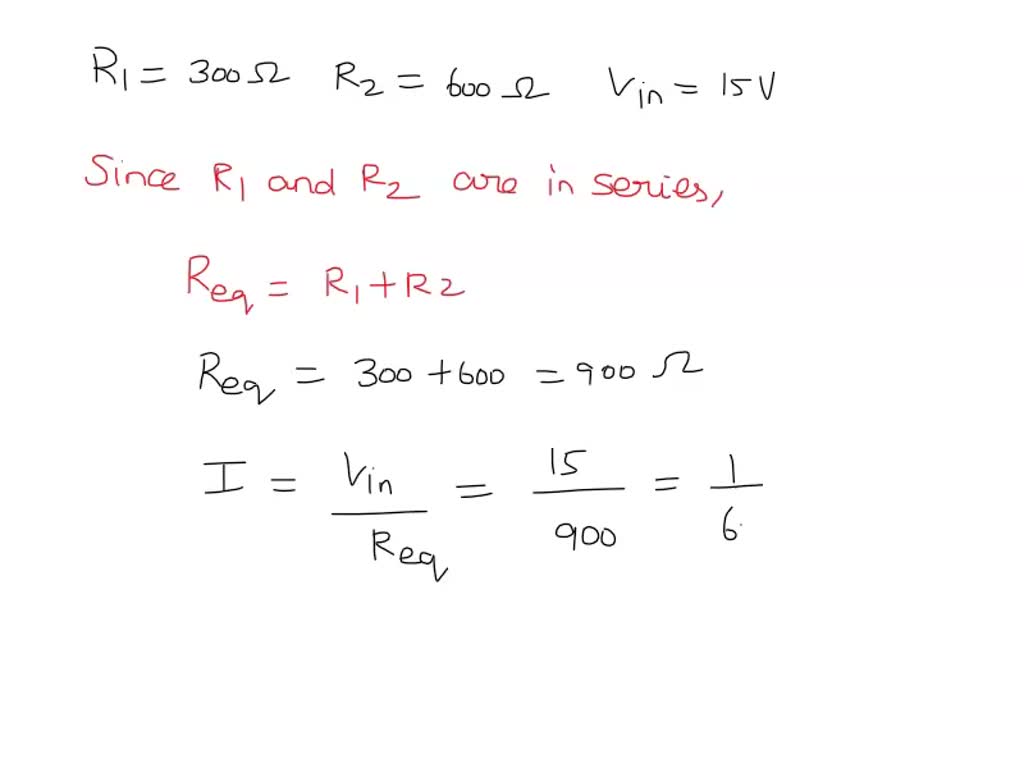 R1 = 300Ω R2 = 600Ω Vin = 15V
Since R1 and R2 are in series,
Req = R1+R2
Req = 300+600 = 900Ω
I = Vin/Req = 15/900 = 1/6